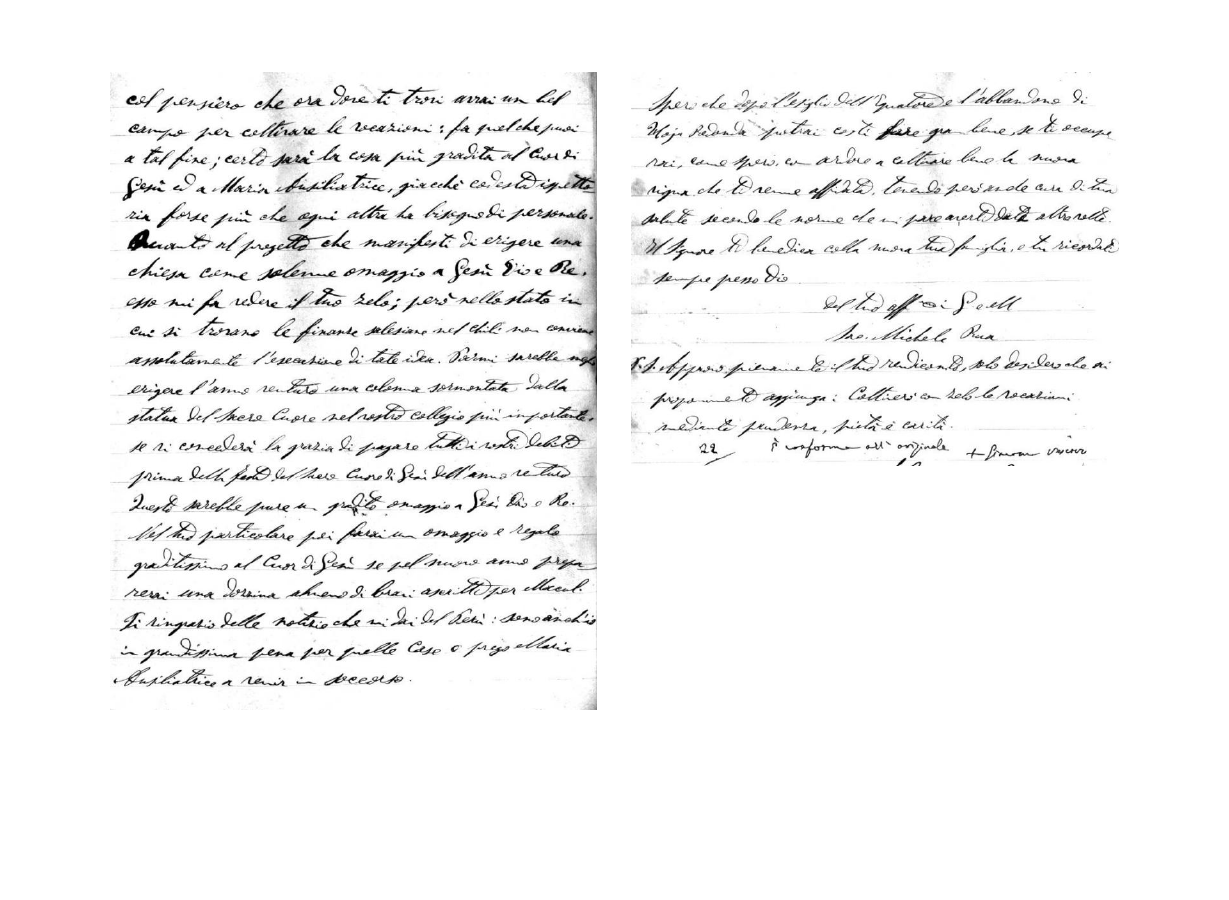 col pensiero che ora dove ti trovi avrai un bel
campo per coltivare le vocazioni: fa quel che puoi
a tal fine; certo sarà la cosa più gradita al Cuor di
Gesù ed a Maria Ausiliatrice, giacchè codesta ispetto
ria forse più che ogni altra ha bisogno di personale.
Quanto al progetto che manifesti di erigere una
chiesa come solenne omaggio a Gesù Dio e Re,
esso mi fa vedere il tuo zelo; però nello stato in
cui si trovano le finanze salesiane nel Chilì non conviene
assolutamente l'esecuzione di tale idea. Parmi sarebbe meglio
erigere l'anno venturo una colonna sormontata dalla
statua del Sacro Cuore nel vostro collegio più importante,
se vi concederà la grazia di pagare tutti i vostri debiti
prima della festa del Sacro Cuore di Gesù dell'anno venturo
Questo sarebbe pure un gradito omaggio a Gesù Dio e Re.
Nel tuo particolare poi farai un omaggio e regalo
graditissimo al Cuor di Gesù se pel nuovo anno prepa
rerai una dozzina almeno di bravi ascritti per Macul.
Ti ringrazio delle notizie che mi dai del Perù: sono anch'io
in grandissima pena per quelle Case e prego Maria
Ausiliatrice a venir in soccorso.
Spero che dopo l'esiglio dall'Equatore e l'abbandono di
potrai costì fare gran bene, se ti occupe
rai, come spero, con ardore a coltivare bene la nuova
vigna che ti venne affidata, tenendo però anche cura di tua
salute secondo le norme che mi pare averti date altre volte.
Il Signore ti benedica colla nuova tua famiglia, e tu ricordati
sempre presso Dio
del tuo aff. in G. e M
Sac. Michele Rua
P.S. Approvo pienamente il tuo rendiconto, solo desidero che ai
proponimenti aggiunga: Coltiverò con zelo le vocazioni
mediante prudenza, pietà e carità.
22 È conforme all'originale
+